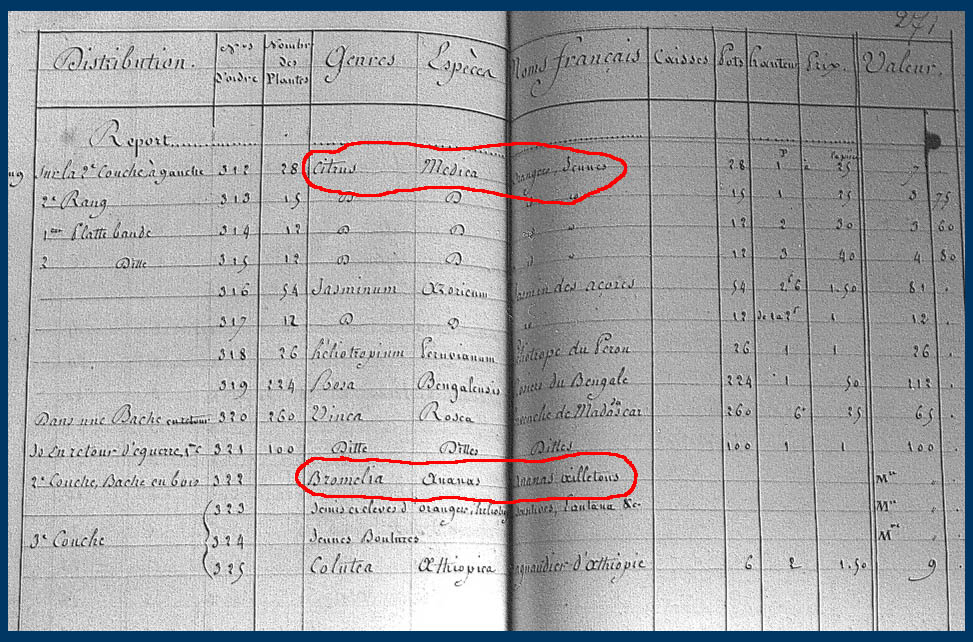 271
Distribution. Nos d'ordre Nombr des Plantes Genres Espèces Noms français Caisses Pots hauteur Prix. Valeur.
Report
Sur la 2e Couche à gauche 312 28 Citrus Medica orangers Jeunes 28 1 25 7
2e Rang 313 15 D D 15 1 25 3 75
1ere Platte bande 314 12 D D 12 2 30 3 60
2 Ditte 315 12 D D 12 3 40 4 80
316 54 Jasminum Azoricum Jasmin des açores 54 1.50 81
317 12 D D 12 1 12
318 26 héliotropium Peruvianum héliotrope du Perou 26 1 1 26
319 224 Rosa Bengalensis du Bengale 224 1 50 112
Dans une Bache en retour 320 260 Vinca Rosea pervenche de Madascar 260 6 25 65
En retour d'equerre 321 100 Ditte Dittes Dittes 100 1 1 100
2e Couche, Bache en bois 322 Bromelia Ananas ananas œilletons M
323 Semis et eleves d'oranger, Lantana &c
3e Couche 324 Jeunes Boutures M
325 Colutea Æthiopica baguenaudier d'æthiopie 6 2 1.50 9